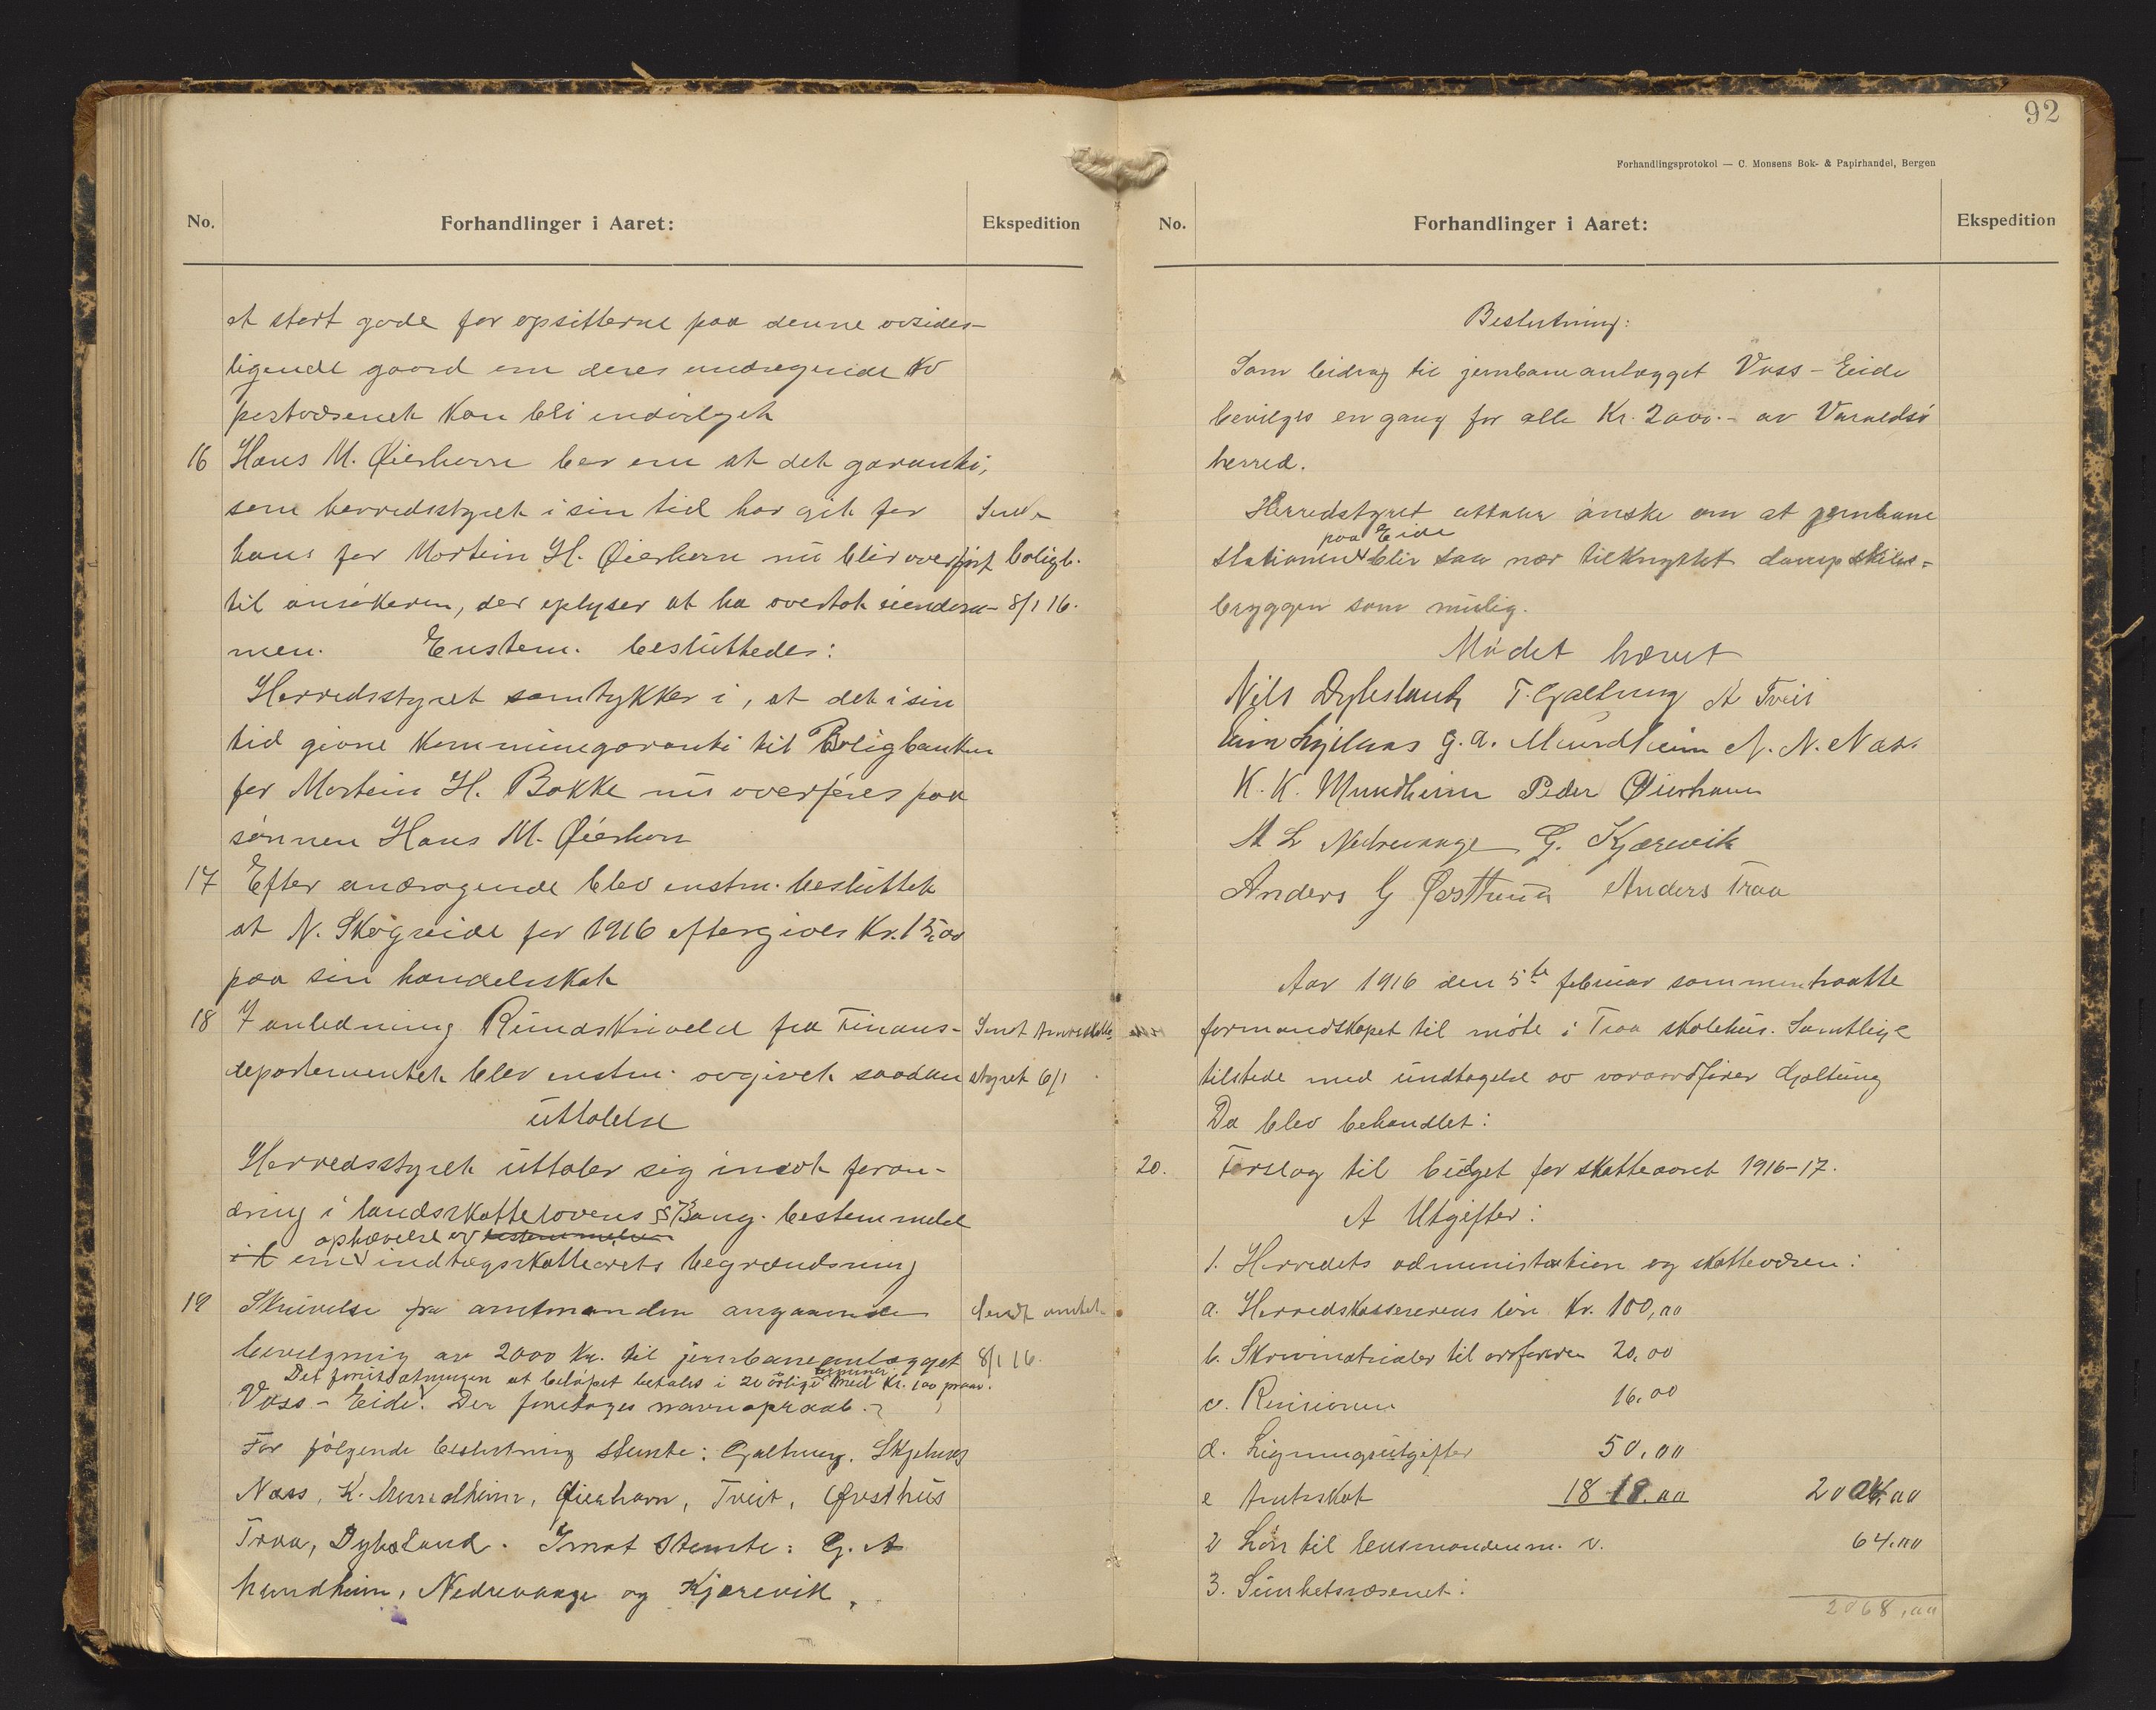 92
Forhandlingsprotokol — C. Monsens Bok- & Papirhandel, Bergen
No. Forhandlinger i Aaret: Ekspedition
et stort gode for opsitterne paa denne avsides-
ligende gaard om deres andragende til
postvæsenet kan bli indvilget
16 Hans M. Øierhavn ber om at det garanti,
som herredsstyret i sin tid har git for Sendt
hans far Mortein H. Øierhavn nu blir overført boligb.
til ansøkeren, der oplyser at ha overtat eiendom- 8/1 16.
men. Enstem. besluttedes:
Herredsstyret samtykker i, at det i sin
tid givne kommunegaranti til Boligbanken
for Mortein H. Bakke nu overføres paa
sønnen Hans M. Øierhavn
17 Efter andragende blev enstm. besluttet
at N. Skogseide for 1916 eftergives Kr. 15,00
paa sin handelsskat
18 I anledning Rundskrivelse fra Finans- Sendt Amtsskatte
departementet blev enstm. avgivet saadan styret 6/1
uttalelse
Herredsstyret uttaler sig imot foran-
dring i landsskattelovens § 3 ang. bestemmelse
ophævelse av bestemmelsen
om indtægsskatteørets begrændsning
19 Skrivelse fra amtmanden angaaende Sendt amtet
bevilgning av 2000 kr. til jernbaneanlægget 8/1 16.
Det forutsætningen at beløpet betales i 20 årlige terminer med Kr. 100 pr aar.
Voss - Eide. Der foretages navneopraab.
For følgende beslutning stemte: Galtung, Skjelnes
Næss, K. Mundheim, Øierhavn, Tveit, Øvsthus
Traa, Dybsland. Imot stemte: G. A
Mundheim, Nedrevaage og Kjærevik.
No. Forhandlinger i Aaret: Ekspedition
Beslutning:
Som bidrag til jernbaneanlægget Voss - Eide
bevilges en gang for alle Kr. 2000.- av Varaldsø
herred.
Herredstyret uttaler ønske om at jernbane
paa Eide
stationen blir saa nær tilknyttet dampskibs-
bryggen som mulig.
Mødet hævet
Nils Dybsland T. Galtung A Tveit
G. A. Mundheim N. Næs.
K. K. Mundheim Peder Øierhavn
M L Nedrevaage G. Kjærevik
Anders G Øvsthus Anders Traa
Aar 1916 den 5te februar sammentraatte
formandskapet til møte i Traa skolehus. Samtlige
tilstede med undtagelse av varaordfører Galtung
Da blev behandlet:
20. Forslag til budget for skatteaaret 1916-17.
A Utgifter:
1. Herredets administration og skattevæsen:
a. Herredskassererens løn Kr. 100,00
b. Skrivmatrialer til ordføreren 20,00
c. Revisionen 16,00
d. Ligningsutgifter 50,00
e Amtsskat 1818.00 2004,00
2 Løn til lensmanden m. v. 64.00
3. Sunhetsvæsenet:
2068,00